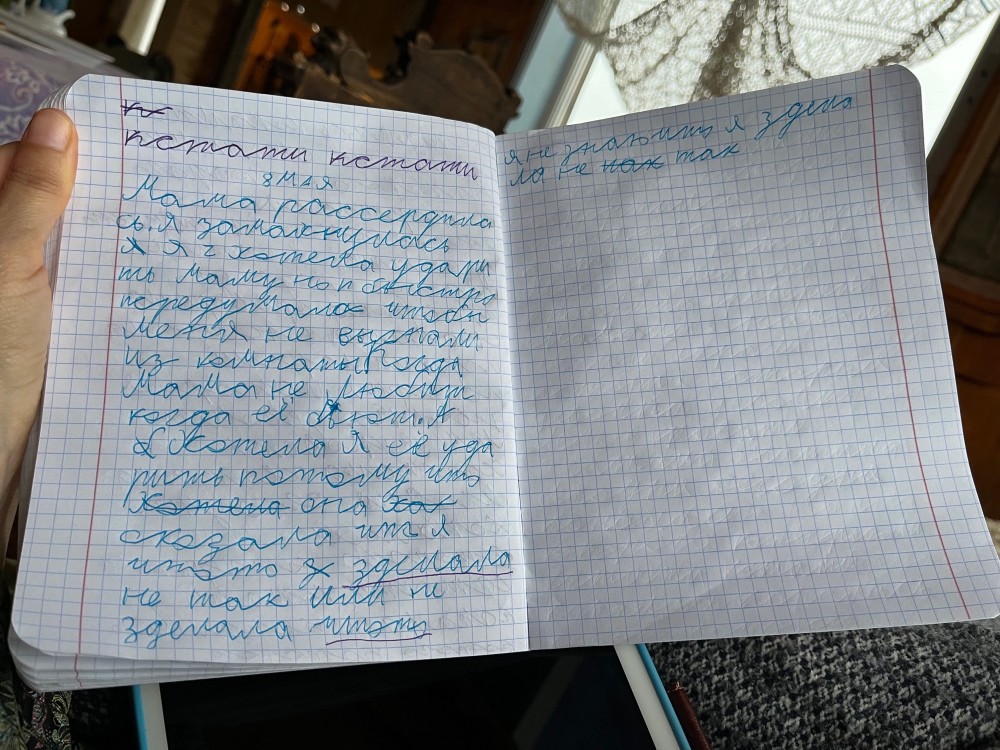 кстати кстати
8 мая
Мама рассердила
сь. Я замахнулась
Я хотела удари
ть маму но быстро
передумала чтобы
меня не выгнали
из комнаты Когда
Мама не любит
когда её бют. А
Хотела я её уда
рить потому что
Хотела она
сказала что я
чтото зделала
не так или не
зделала чтото
я не знаю что я здела
ла не так